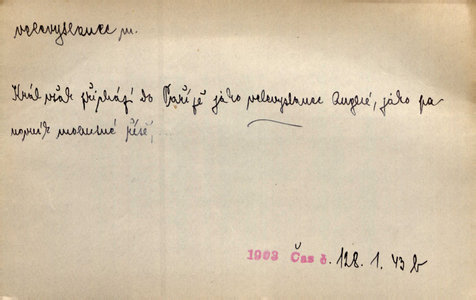 velevyslanec m.
Král však přijíždí do Paříže jako velevyslanec Anglie, jako pa-
novník mocné říše,
1903 Čas č. 128. 1. 43 b